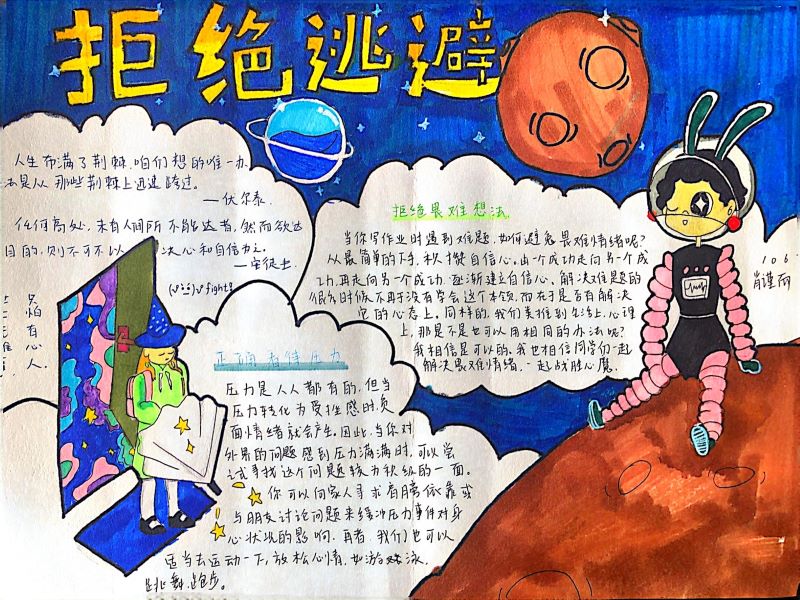 拒绝逃避
人生布满了荆棘,咱们想的唯一办
法是从那些荆棘上迅速跨过。
——伏尔泰.
任何高处,未有人间所不能达者,然而欲达
目的,则不可不以 决心和自信力之.
——安徒生
fight!
只
怕
有
心
人.
拒绝畏难想法
当你写作业时遇到难题,如何避免畏难情绪呢?
从最简单的下手,积攒自信心,由一个成功走向另一个成
功,再走向另一个成功.逐渐建立自信心、解决难题的
很多时候,不再于没有学会这个本领,而在于是否有解决
它的心态上,同样的,我们卖难到生活上,心理
上,那是不是也可以用相同的办法呢?
我相信是可以的。我也相信同学们一起
解决畏难情绪,一起战胜心魔.
106
肖谨雨
正确看待压力
压力是人人都有的,但当
压力转化为受挫感时,负
面情绪就会产生。因此,当你对
外界的问题感到压力满满时,可以尝
试寻找这个问题较为积极的一面。
你可以向家人寻求肩膀依靠或
与朋友讨论问题来缓冲压力事件对身
心状况的影响,再者,我们也可以
适当去运动一下,放松心情,如游泳,
跳舞,跑步。